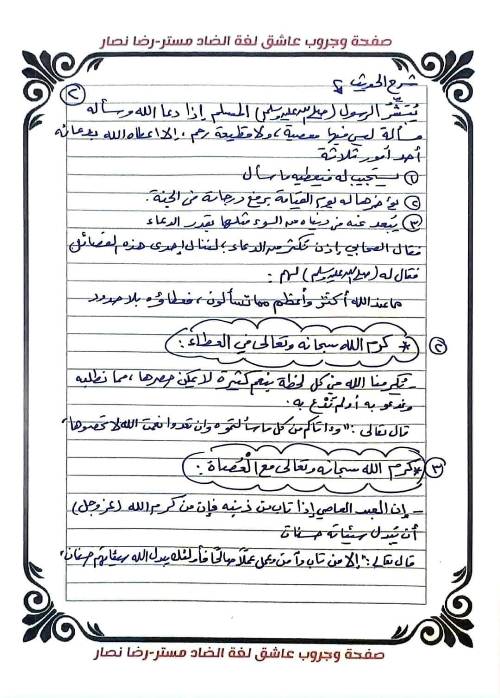 صفحة وجروب عاشق لغة الضاد مستر-رضا نصار
شرح الحديث :
(٢)
يُبَشِّرُ الرسول (صلى الله عليه وسلم) المسلم إذا دعا الله وسأله
مسألة ليس فيها معصية، ولا قطيعة رحم، إلا أعطاه الله بدعائه
أحد أمور ثلاثة
(١) يستجيب له فيعطيه ما سأل
(٢) يؤخرها له يوم القيامة برفع درجاته في الجنة.
(٣) يبعد عنه من دنياه من السوء مثلها بقدر الدعاء
فقال الصحابي إذن نكثر من الدعاء، لننال إحدى هذه الفضائل
فقال له (صلى الله عليه وسلم) لهم :
ما عند الله أكثر وأعظم مما تسألون، فعطاؤه بلا حدود
(٢) * كرم الله سبحانه وتعالى في العطاء :
- يكرمنا الله من كل لحظة بنعم كثيرة لا يمكن حصرها، مما نطلبه
وندعو به أو لم ندع به .
قال تعالى : "وآتاكم من كل ما سألتموه وإن تعدوا نعمت الله لا تحصوها"
(٣) * كرم الله سبحانه وتعالى مع العُصاة :
- إن العبد العاصي إذا تاب من ذنبه فإن من كرم الله (عز وجل)
أن يبدل سيئاته حسنات
قال تعالى : "إلا من تاب وآمن وعمل عملاً صالحًا فأولئك يبدل الله سيئاتهم حسنات"
صفحة وجروب عاشق لغة الضاد مستر-رضا نصار